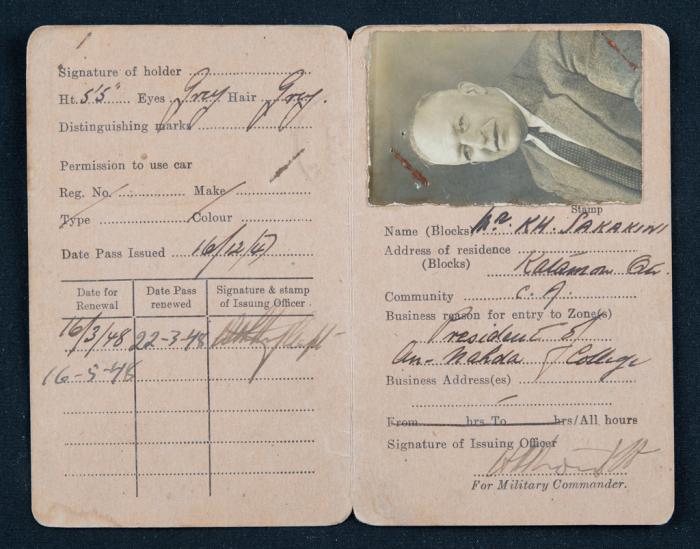 Signature of holder
Ht. 5'5" Eyes Grey Hair Grey.
Distinguishing marks
Permission to use car
Reg. No. Make
Type Colour
Date Pass Issued 16/12/47
Date for Renewal
Date Pass renewed
Signature & stamp of Issuing Officer
16/3/48 22-3-48
16-5-48
Stamp
Name (Blocks) Mr. KH. SAKAKINI
Address of residence
(Blocks) Katamon
Community C. A.
Business reason for entry to Zone(s)
President of
An-Nahda College
Business Address(es)
From hrs To hrs/All hours
Signature of Issuing Officer
For Military Commander.